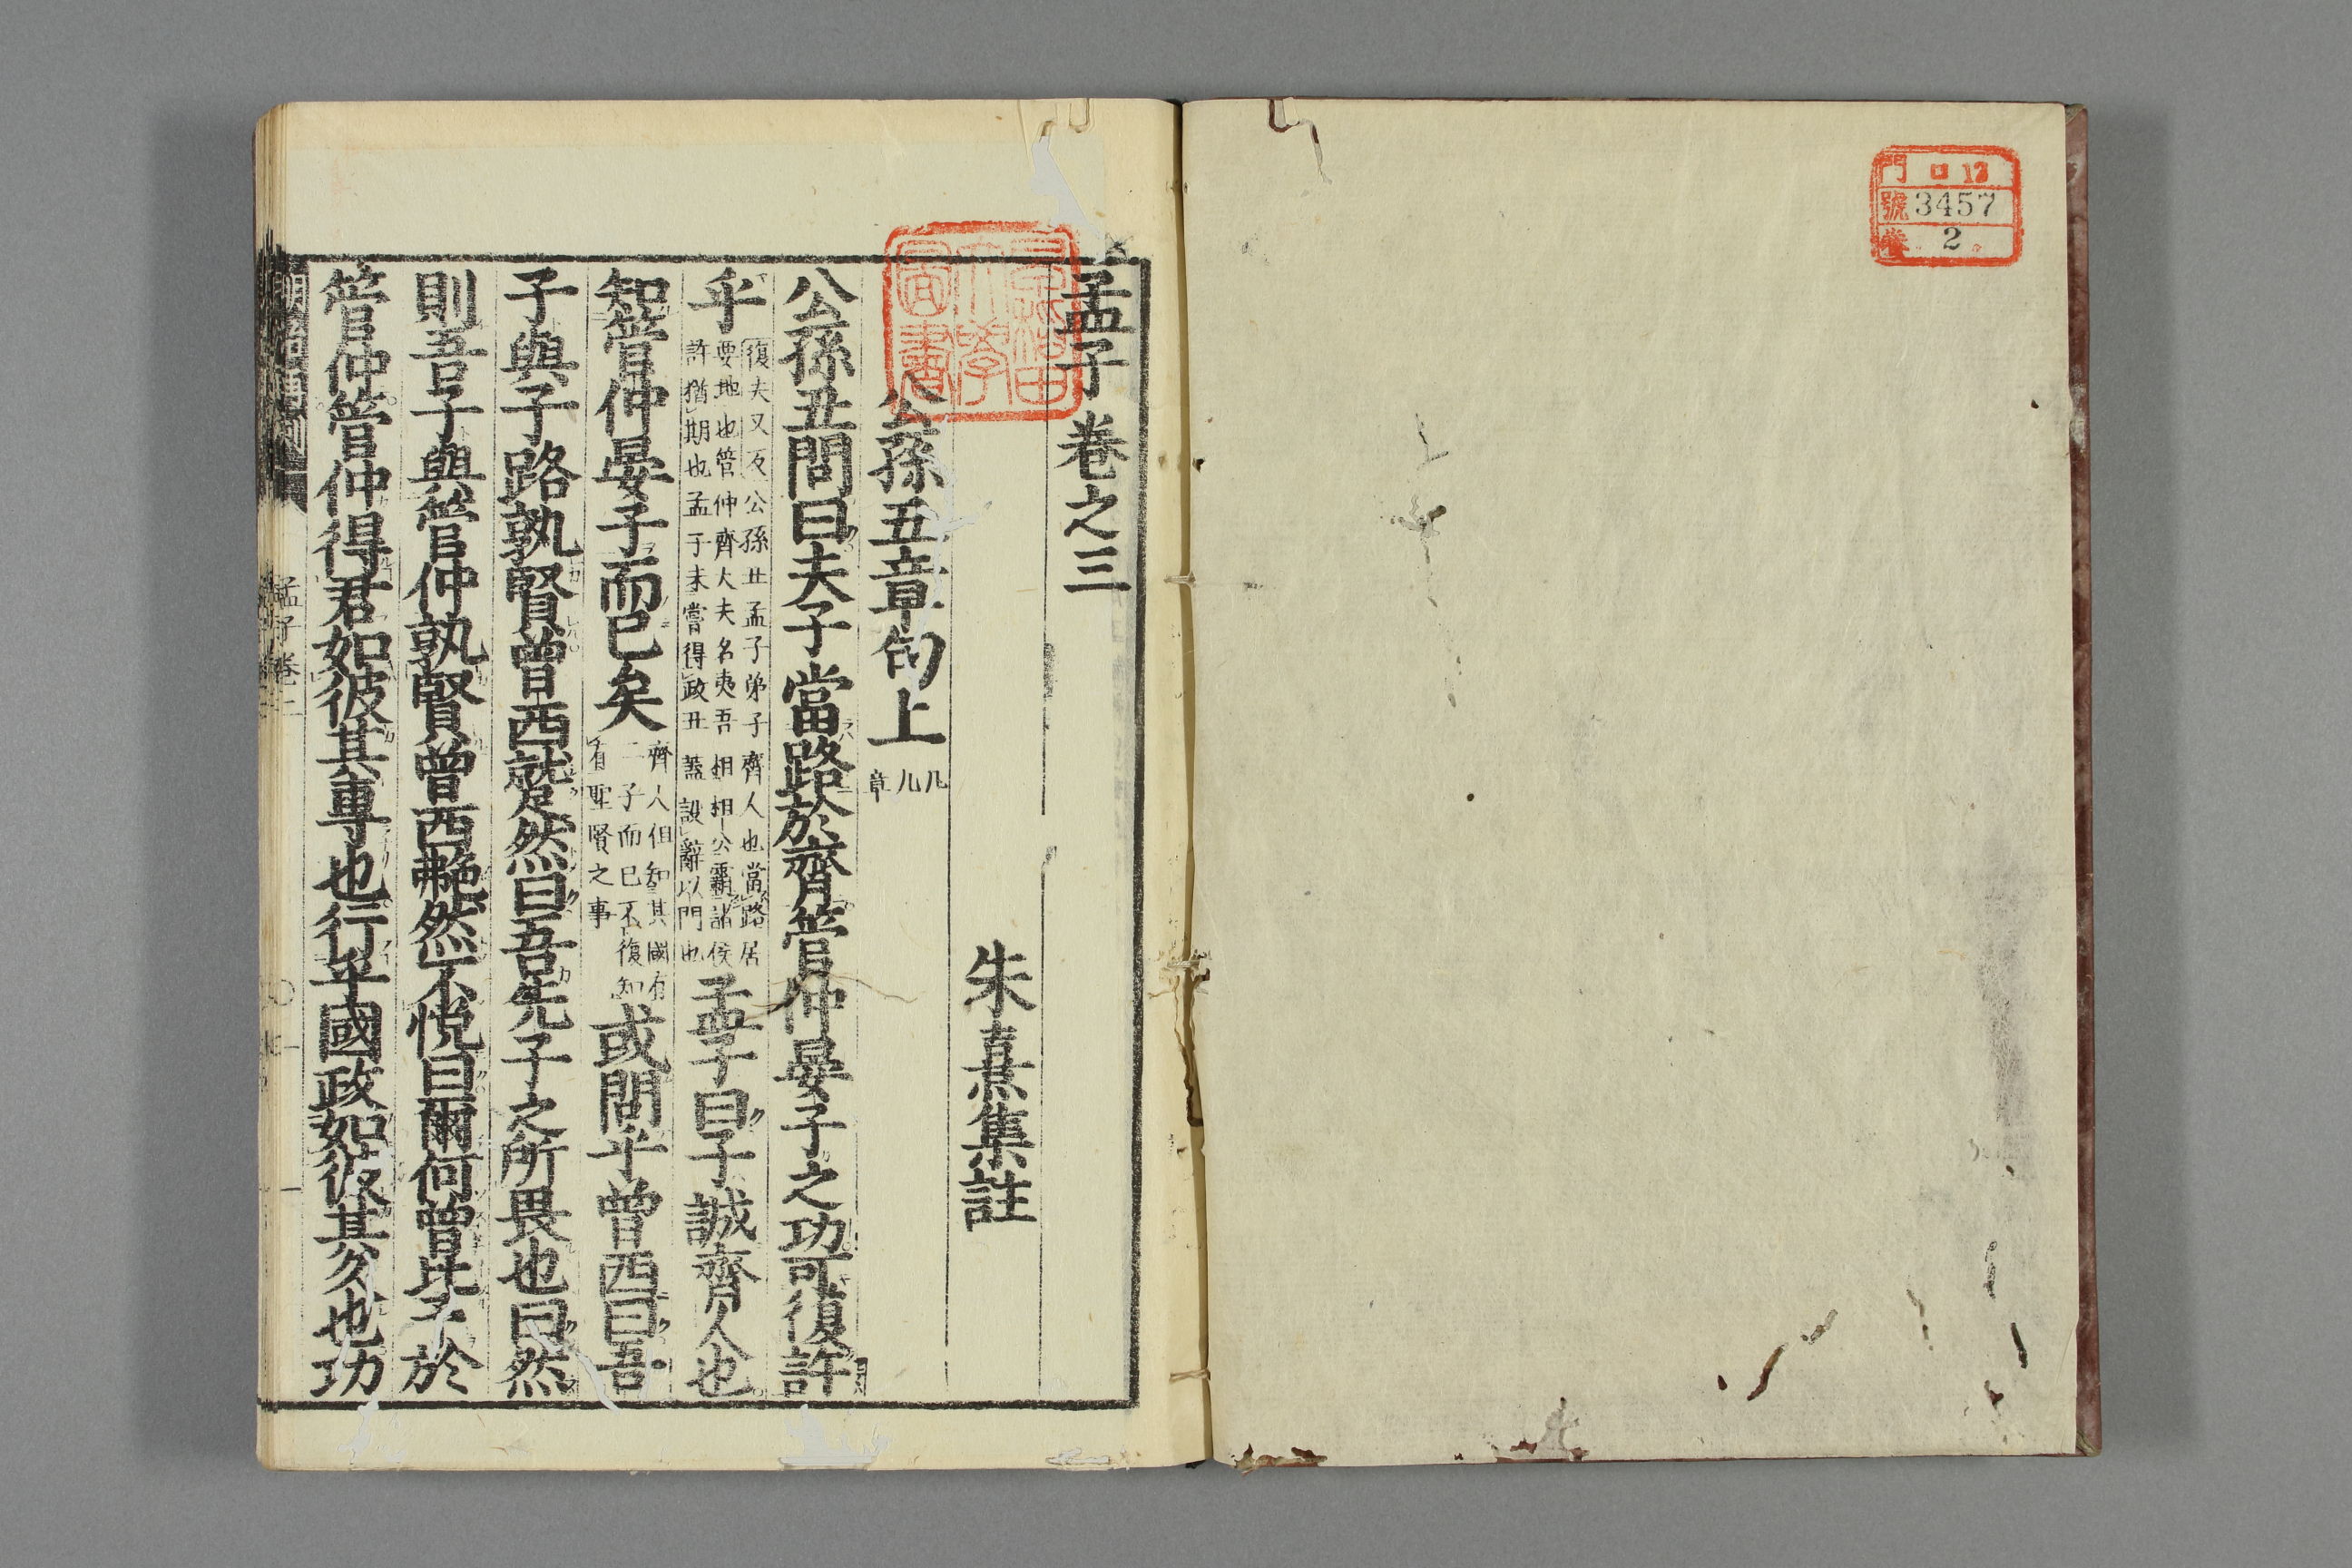 門 ロ 12
號 3457
卷 2
早稲田大學圖書
孟子卷之三
朱熹集註
公孫丑章句上 凡九章
公孫丑問曰夫子當路於齊管仲晏子之功可復許
乎
復夫又反公孫丑孟子弟子齊人也當路居
要地也管仲齊大夫名夷吾相桓公霸諸侯
許猶期也孟子未嘗得政丑蓋設辭以問也
孟子曰子誠齊人也
知管仲晏子而已矣
齊人但知其國有
二子而已不復知
有聖賢之事
或問乎曾西曰吾
子與子路孰賢曾西蹵然曰吾先子之所畏也曰然
則吾子與管仲孰賢曾西艴然不悅曰爾何曾比予於
管仲管仲得君如彼其專也行乎國政如彼其久也功
孟子卷三